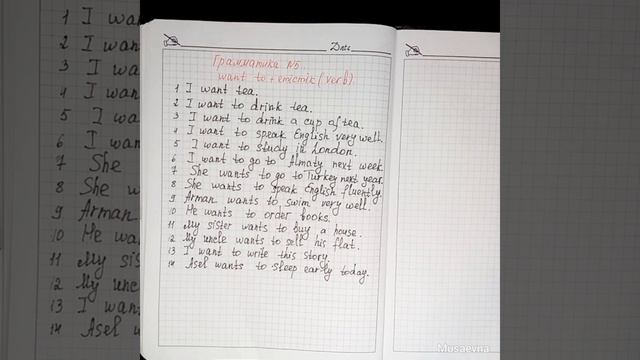 Date
Грамматика №5.
want to + етістік (verb)
1 I want tea.
2 I want to drink tea.
3 I want to drink a cup of tea.
4 I want to speak English very well.
5 I want to study in London.
6 I want to go to Almaty next week.
7 She wants to go to Turkey next year.
8 She wants to speak English fluently.
9 Arman wants to swim very well.
10 He wants to order books.
11 My sister wants to buy a house.
12 My uncle wants to sell his flat.
13 I want to write this story.
14 Asel wants to sleep early today.
Musaevna